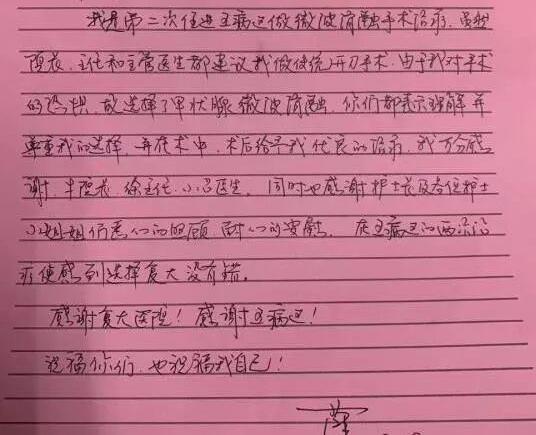 我是第二次住进五病区做微波消融手术治疗,虽然
院长、主任和主管医生都建议我做传统开刀手术,由于我对手术
的恐惧,故选择了甲状腺微波消融,你们都表示理解并
尊重我的选择,并在术中、术后给予我优良的治疗,我万分感
谢牛院长、徐主任、小吕医生,同时也感谢护士长及各位护士
小姐姐们悉心的照顾、耐心的安慰,在五病区的两次治
疗使感到选择复大没有错。
感谢复大医院!感谢五病区!
祝福你们,也祝福我自己!